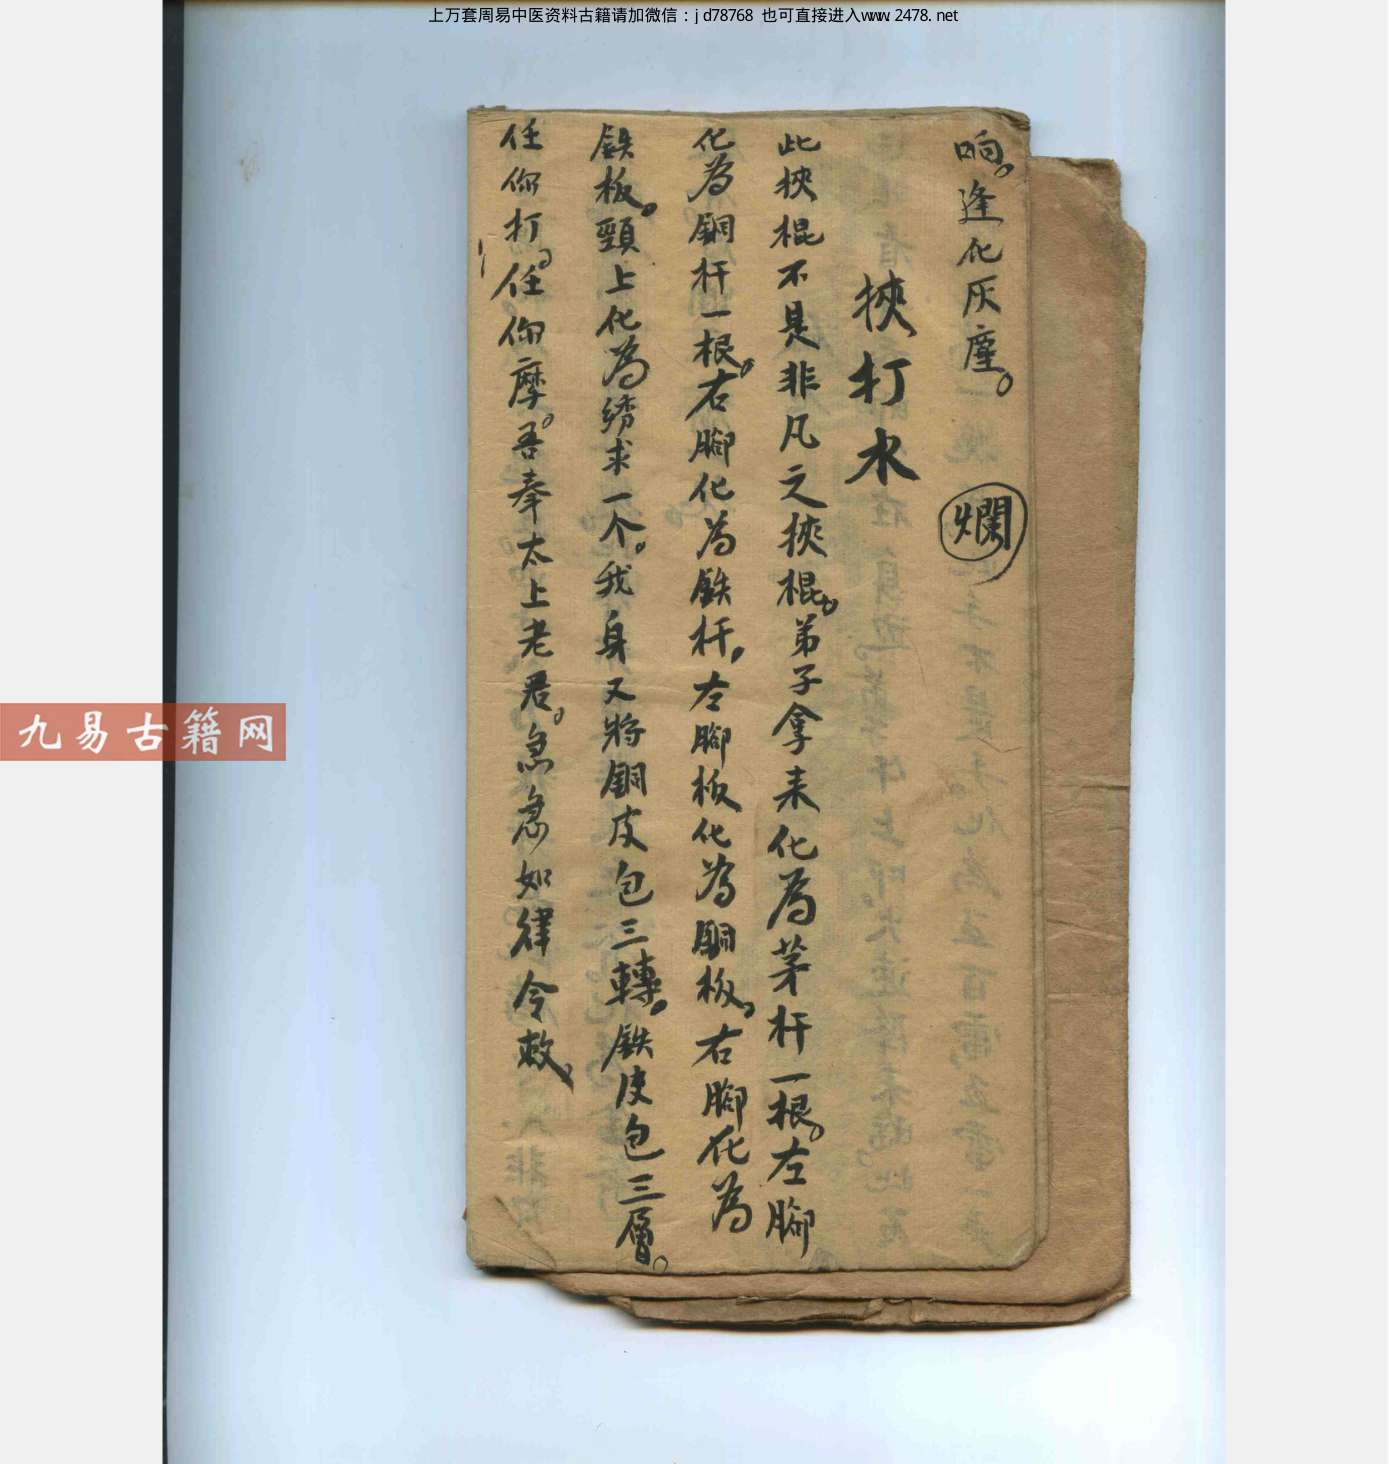 上万套周易中医资料古籍请加微信：jd78768 也可直接进入www.2478.net
响。逢化灰塵。 爛
挾打水
此挾棍不是非凡之挾棍。弟子拿来化為茅杆一根。左腳
化為銅杆一根。右腳化為鉄杆。左腳板化為銅板。右腳化為
鉄板。頸上化為绣求一个。我身又将銅皮包三轉。鉄皮包三層。
任你打。任你摩。吾奉太上老君。急急如律令敕
九易古籍网